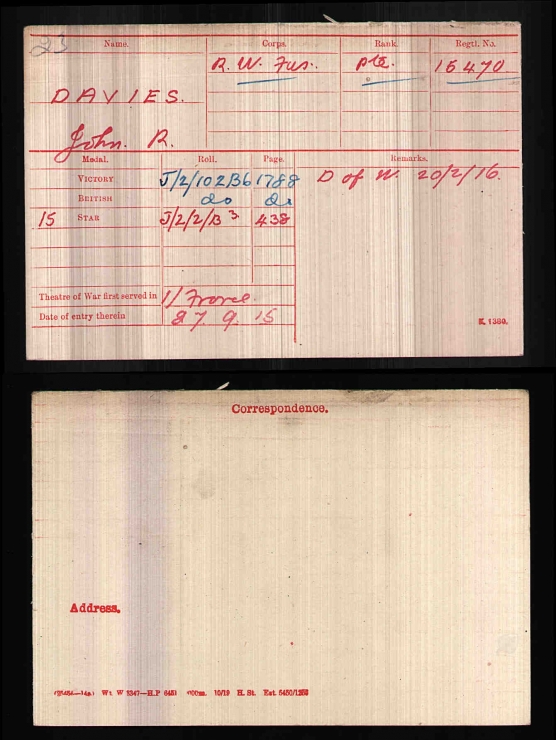 23
Name. Corps. Rank. Regtl. No.
R. W. Fus. Pte. 15470
DAVIES.
John. R.
Medal. Roll. Page. Remarks.
VICTORY J/2/102B6 1788 D of W. 20/2/16.
BRITISH do do
15 STAR J/2/2/B3 438
Theatre of War first served in 1/ France.
Date of entry therein 9. 15
K. 1380.
Correspondence.
Address.
Wt. W 5347—H.P 10/19 H. St.